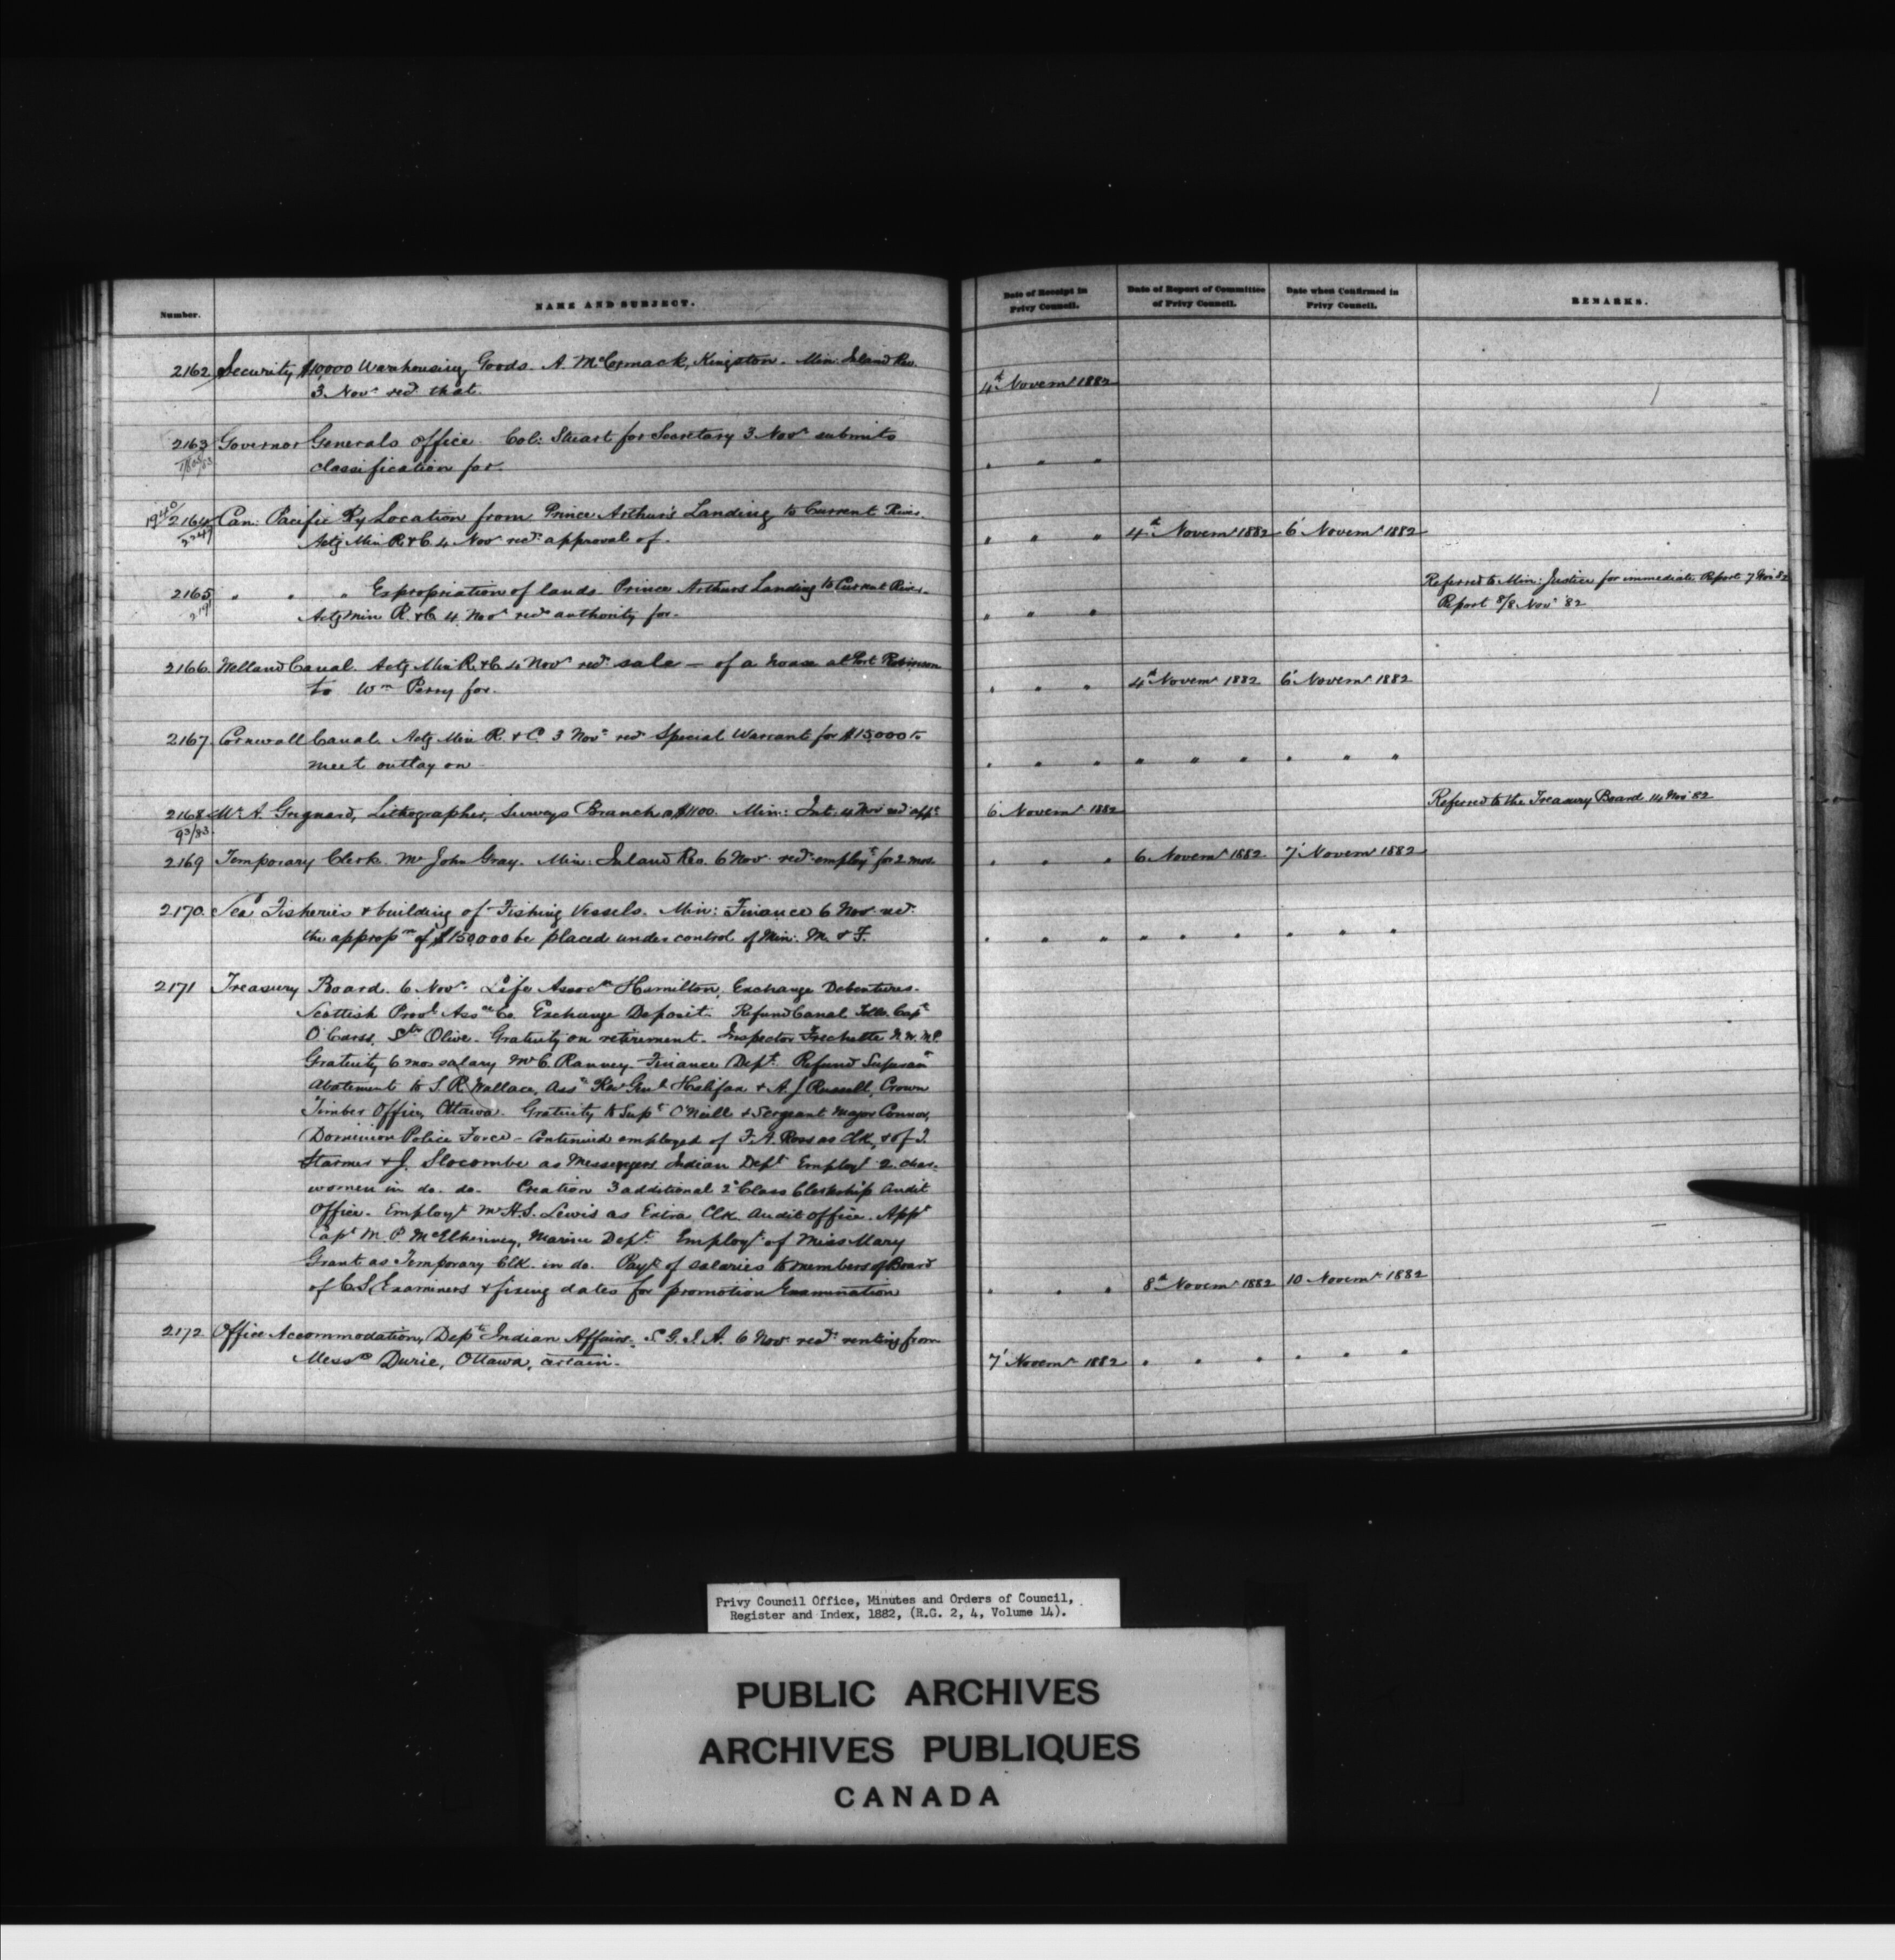 Number.
NAME AND SUBJECT.
Date of Receipt in
Privy Council.
Date of Report of Committee
of Privy Council.
Date when Confirmed in
Privy Council.
REMARKS.
2162 Security $10,000 Warehousing Goods. A. McCormack, Kingston. Min: Inland Rev.
3 Novr recd that.
4th Novemr 1882
2163 Governor Generals Office. Col: Stuart for Secretary 3 Novr submits
classification for.
" " "
1940
2164 Can: Pacific Ry Location from Prince Arthur's Landing to Current River.
2247
Actg Min R & C 4 Nov recd approval of.
" " " 4th Novemr 1882 6' Novemr 1882
2165 " " " Expropriation of lands Prince Arthurs Landing to Current River.
2191
Actg Min R. & C 4 Novr recd authority for.
" " "
Referred to Min: Justice for immediate Report 7 Nov 82
Report 8/8 Novr '82
2166 Welland Canal Actg Min R. & C 4 Novr recd sale — of a house at Port Robinson
to Wm Perry for.
" " " 4th Novemr 1882 6' Novemr 1882
2167 Cornwall Canal. Actg Min R. & C. 3 Novr recd Special Warrant for $15,000 to
meet outlay on
" " " " " " " " "
2168 Mr A. Gregnard, Lithographer, Surveys Branch @ $1100. Min: Int. 4 Nov recd appt
93/83
6' Novemr 1882
Referred to the Treasury Board 14 Nov 82
2169 Temporary Clerk Mr John Gray. Min: Inland Rev. 6 Nov. recd employt for 2 mos
" " " 6 Novemr 1882 7' Novemr 1882
2170 Sea Fisheries & building of Fishing Vessels. Min: Finance 6 Nov recd
the appropn of $150,000 be placed under control of Min: M. & F.
" " " " " " " " "
2171 Treasury Board. 6 Novr Life Assocn Hamilton, Exchange Debentures.
Scottish Provl Assce Co. Exchange Deposit. Refund Canal Tolls Capt
O'Carss, Str Olive. Gratuity on retirement. Inspector Frechette N.W.M.P.
Gratuity 6 mos salary Mr C. Ranney Finance Dept. Refund Superann
Abatement to S. R. Wallace, Asst Recr Genl Halifax & A. J Russell, Crown
Timber Office, Ottawa. Gratuity to Supt O'Neill & Sergeant Major Connor,
Dominion Police Force - Continued employed of F. A. Ross as Clk, & of J.
Starmer & J. Slocombe as Messengers Indian Dept Employt 2 char-
women in do. do. Creation 3 additional 2d Class Clerkship Audit
Office. Employt Mr H. S. Lewis as Extra Clk. Audit office. Appt
Capt M. P McElhinney, Marine Dept. Employt of Miss Mary
Grant as Temporary Clk. in do. Payt of salaries to members of Board
of C. S. Examiners & fixing dates for promotion Examination
" " " 8th Novemr 1882 10 Novemr 1882
2172 Office Accommodation, Dept Indian Affairs. S. G. I. A. 6 Nov. recd renting from
Messrs Durie, Ottawa, certain.
7' Novemr 1882 " " " " " "
Privy Council Office, Minutes and Orders of Council,
Register and Index, 1882, (R.G. 2, 4, Volume 14).
PUBLIC ARCHIVES
ARCHIVES PUBLIQUES
CANADA